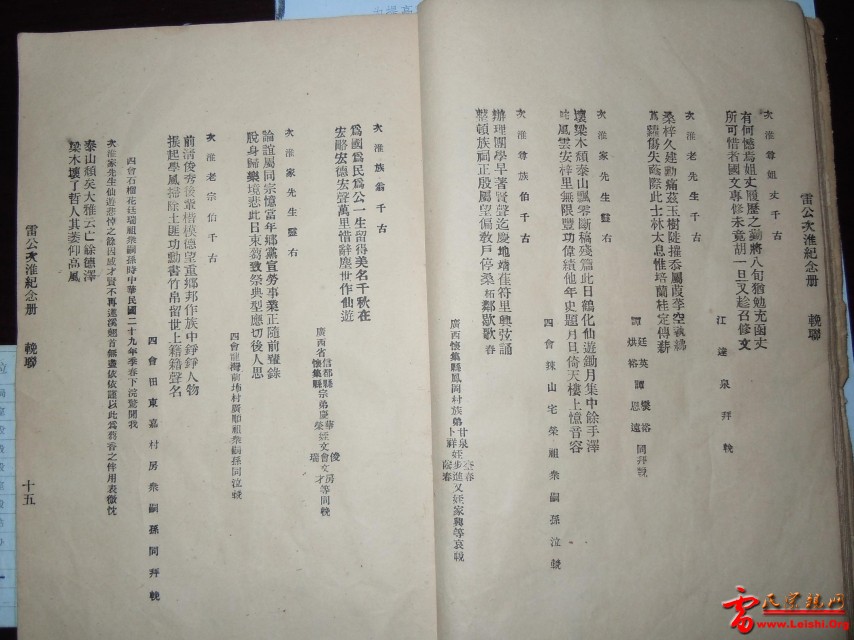 雷公次淮紀念册 輓聯
次淮尊姐丈千古
有何憾焉姐丈履歷之勤將八旬猶勉充函丈
所可惜者國文專修未竟胡一旦又趁召修文
江達泉拜輓
次淮老家先生千古
桑梓久建勳痛茲玉樹陡摧忝屬葭莩空執紼
蔦蘿傷失蔭際此士林太息惟培蘭桂定傳薪
譚廷英 譚爕裕
烘裕 恩遠 同拜輓
次淮老宗台千古
壞梁木頹泰山飄零斷稿殘篇此日鶴化仙遊鋤月集中餘手澤
咤風雲安梓里無限豐功偉績他年史題月旦倚天樓上憶音容
四會辣山宅榮祖衆嗣孫泣輓
次淮尊族伯千古
辦理團學早著賢聲迄慶地靖萑符里興弦誦
整頓族祠正殷屬望偏教戶停桑柘鄰歇歌春
廣西懷集縣鳳岡村族弟
等哀輓
次淮族翁千古
爲國爲民爲公一生留得美名千秋在
宏略宏德宏聲萬里惜辭塵世作仙遊
廣西省信都縣懷集縣宗弟
等同輓
次淮家先生靈右
論誼屬同宗憶當年鄉黨宣勞事業正隨前輩錄
脫身歸樂境悲此日束蒭致祭典型應切後人思
四會龍灣前地村廣順祖衆嗣孫同泣輓
次淮老宗伯千古
前清俊秀後輩楷模德望重鄉邦作族中錚錚人物
振起學風掃除土匪功勳書竹帛留世上籍籍聲名
四會田東嘉村房衆嗣孫同拜輓
四會石榴花廷瑞祖衆嗣孫時中華民國二十九年季春下浣驚聞我
次淮家先生仙遊悲悼之餘因感才賢不再蓮溪翹首無盡依依謹以此爲蒭香之伴用表微忱
泰山頹矣大雅云亡餘德澤
梁木壞了哲人其萎仰高風
雷公次淮紀念册 輓聯 十五
雷氏宗親网
www.Leishi.Org